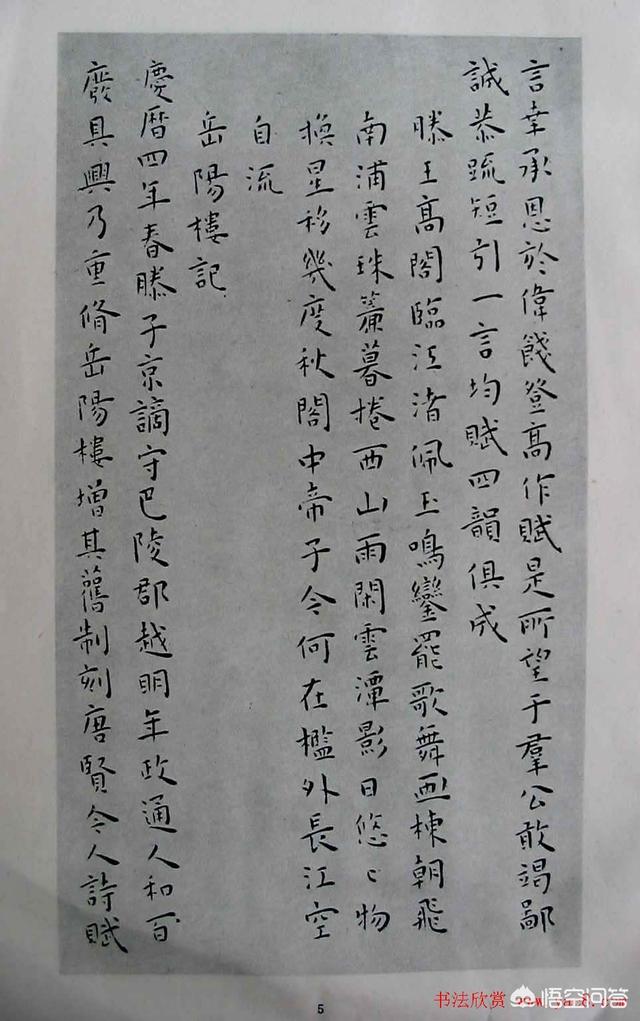 言幸承恩於偉餞登高作賦是所望于羣公敢竭鄙
誠恭疏短引一言均賦四韻俱成
滕王高閣臨江渚佩玉鳴鑾罷歌舞画棟朝飛
南浦雲珠簾暮捲西山雨閑雲潭影日悠〻物
換星移幾度秋閣中帝子今何在檻外長江空
自流
岳陽樓記
慶曆四年春滕子京謫守巴陵郡越明年政通人和百
廢具興乃重脩岳陽樓增其舊制刻唐賢今人詩賦
5
书法欣赏
悟空问答